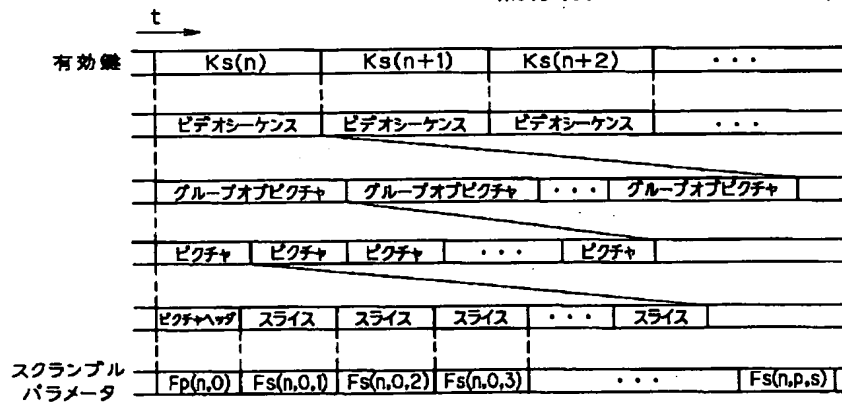 t
有効鍵 Ks(n) Ks(n+1) Ks(n+2) ・・・
ビデオシーケンス ビデオシーケンス ビデオシーケンス ・・・
グループオブピクチャ グループオブピクチャ ・・・ グループオブピクチャ
ピクチャ ピクチャ ピクチャ ・・・ ピクチャ
ピクチャヘッダ スライス スライス スライス ・・・ スライス
スクランブル
パラメータ Fp(n,0) Fs(n,0,1) Fs(n,0,2) Fs(n,0,3) ・・・ Fs(n,p,s)